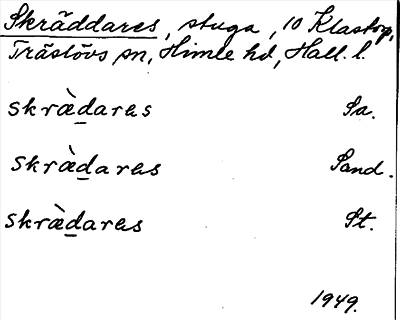 Skräddares, stuga, 10 Klastorp,
Träslövs sn, Himle hd, Hall. l.
skræ̀dares Sa.
skræ̀dares Sand.
skræ̀dares St.
1949.